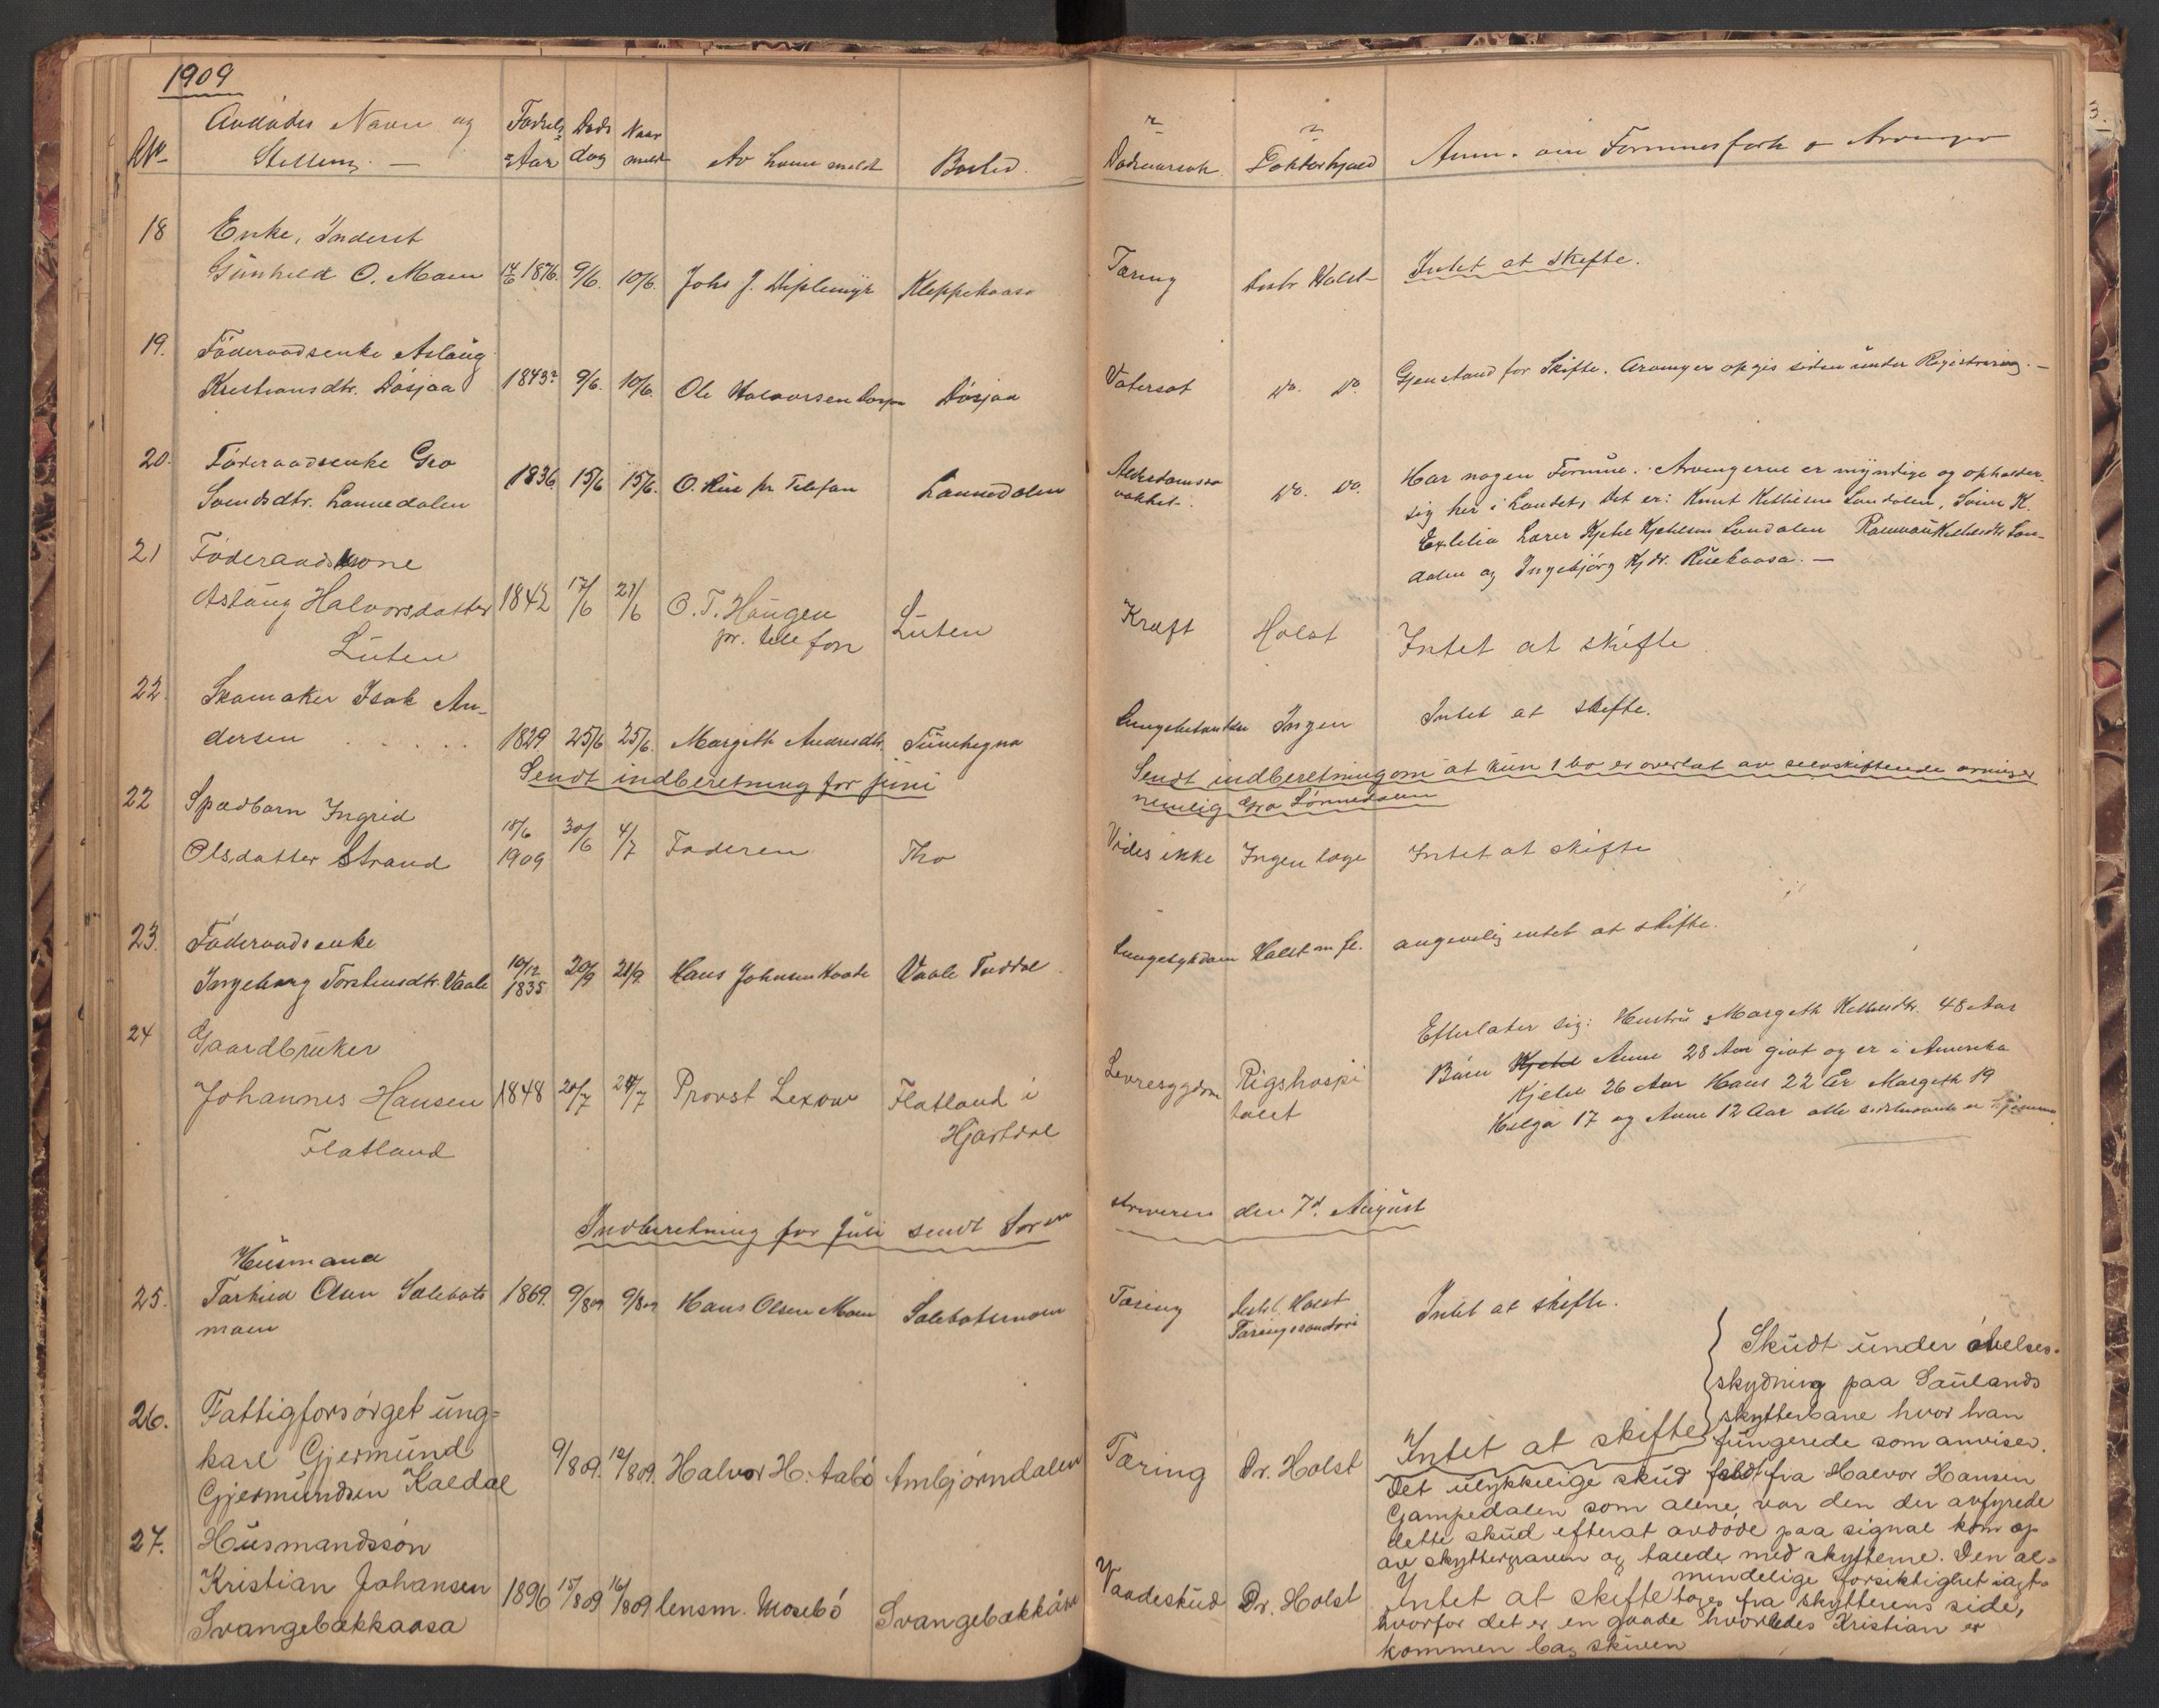 1909
No
Avdødes Navn og
Stilling. —
Fødsels
Aar
Døds
dag
Naar
meldt
Av hvem meldt
Bosted.
Dødsaarsak
Doktorhjælp
Anm. om Formuesforh. o Arvinger
18
Enke, Inderst
Günhild O. Moen
14/6 1876.
9/6.
10/6.
Johs J.
Kleppekaasa
Tæring
Distr Holst
Intet at skifte.
19.
Föderaadsenke Aslaüg
Kristiansdtr. Dösjaa
1843?
9/6.
10/6.
Ole Halvorsen
Dösjaa
Vatersot
Do. Do.
Gjenstand for Skifte. Arvinger opgis siden ünder Registrering. —
20.
Föderaadsenke Gro
Svendsdtr. Lonnedalen
1836.
15/6
15/6.
O. Rüe pr Telefon
Lonnedalen
Alderdomssvakhet.
Do. Do.
Har nogen Formüe. Arvingerne er myndige og opholder
sig her i Landet, Det er: Knut Kittilsen Londalen, Svein K.
Lærer Kjetil Kjetilsen Londalen
dalen og Ingebjörg Kj.dr. Rüekaasa. —
21
Föderaadskone
Aslaüg Halvorsdatter
Lüten
1842
17/6
21/6
O. T. Haügen
pr. telefon
Lüten
Kræft
Holst
Intet at skifte
22.
Skomaker Isak An-
dersen . . . . .
1829
25/6
25/6.
Margith Andersdtr.
Tünehegna
Ingen
Intet at skifte.
Sendt indberetning for jüni
Sendt indberetning om at kün 1 bo er overlat av selvskiftende arvinger
nemlig Gro Lönnedalen
22
Spædbarn Ingrid
Olsdatter Strand
18/6
1909
30/6
4/7
Faderen
Tho
Vides ikke
Ingen læge
Intet at skifte
23.
Föderaadsenke
Ingeborg Torsteinsdtr. Vaale
10/12
1835
20/9
21/9.
Hans Johnsen
Vaale Tuddal
Lungesykdom
Holst m fl.
angivelig intet at skifte.
24
Gaardbrüker
Johannes Hansen
Flatland
1848
20/7
24/7
Provst Lexow
Flatland i
Hjartdal
Leversygdom
Rigshospi
talet
Efterlater sig: Hustrü Margith Kittilsdtr. 48 Aar
Börn Kjetil Anne 28 Aar givt og er i Amerika
Kjetil 26 Aar Hans 22 År Margith 19
Helga 17 og Anne 12 Aar alle sidstnævnte er hjemme
Indberetning for Jüli sendt Sorenskriveren den 7d. Aügüst
25.
Hüsmand
Tarkild Olsen Salebots
moen
1869.
9/8 09
9/8 09
Hans Olsen Moen
Salebotsmoen
Tæring
Distr. Holst
Intet at skifte.
26.
Fattigforsörget üng-
karl Gjermünd
Gjermündsen Kaldal
9/8 09.
12/8 09.
Halvor H. Aabö
Ambjörndalen
Tæring
Dr. Holst
Intet at skifte
27.
Hüsmandssön
Kristian Johansen
Svangebækkaasa
1896
15/8 09
16/8 09
lensm. Mosebö
Svangebækkåsa
Vaadesküd
Dr. Holst
Intet at skifte
Sküdt ünder övelses-
skydning paa Saülands
skytterbane hvor han
füngerede som anviser.
Det ülykkelige sküd faldt fra Halvor Hansen
Gampedalen som alene var den der avfyrede
dette sküd efterat avdöde paa signal kom op
av skyttergraven og talede med skytterne. Den al-
mindelige forsiktighet iagt-
toges fra skytterens side,
hvorfor det er en gaade hvorledes Kristian er
kommen bag skiven